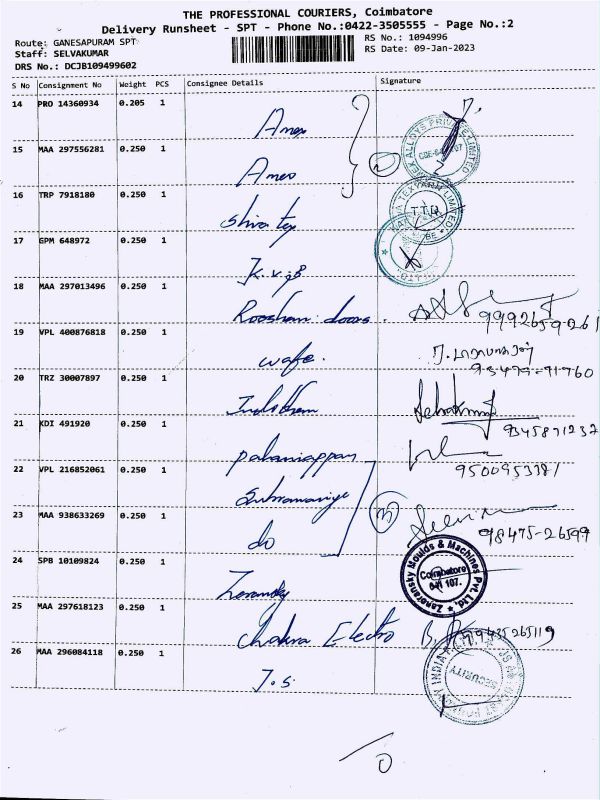 THE PROFESSIONAL COURIERS, Coimbatore
Delivery Runsheet - SPT - Phone No.:0422-3505555 - Page No.:2
Route: GANESAPURAM SPT
Staff: SELVAKUMAR
DRS No.: DCJB109499602
RS No.: 1094996
RS Date: 09-Jan-2023
S No Consignment No Weight PCS Consignee Details Signature
14 PRO 14360934 0.205 1
15 MAA 297556281 0.250 1
16 TRP 7918180 0.250 1
Shiva tex
17 GPM 648972 0.250 1
18 MAA 297013496 0.250 1
doors
19 VPL 400876818 0.250 1
20 TRZ 30007897 0.250 1
21 KDI 491920 0.250 1
9345871232
palaniappan
9500953381
22 VPL 216852061 0.250 1
23 MAA 938633269 0.250 1
do
98475-26599
24 SPB 10109824 0.250 1
Zanoransky Moulds & Machines Pvt. Ltd.
Coimbatore
641 107.
25 MAA 297618123 0.250 1
Chakra Electro
26 MAA 296084118 0.250 1
J.S.
SECURITY